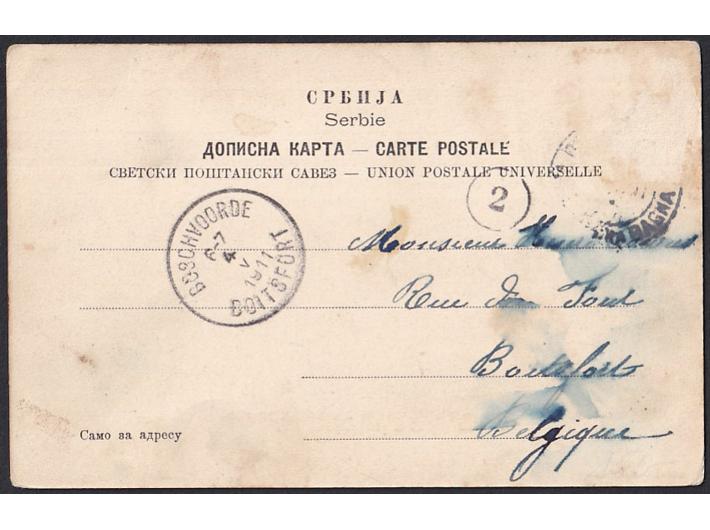 СРБИЈА
Serbie
ДОПИСНА КАРТА — CARTE POSTALE
СВЕТСКИ ПОШТАНСКИ САВЕЗ — UNION POSTALE UNIVERSELLE
2
BOSCHVOORDE
6-7
4
V
1911
BOITSFORT
Monsieur
Rue du
Boitsfort
Belgique
Само за адресу